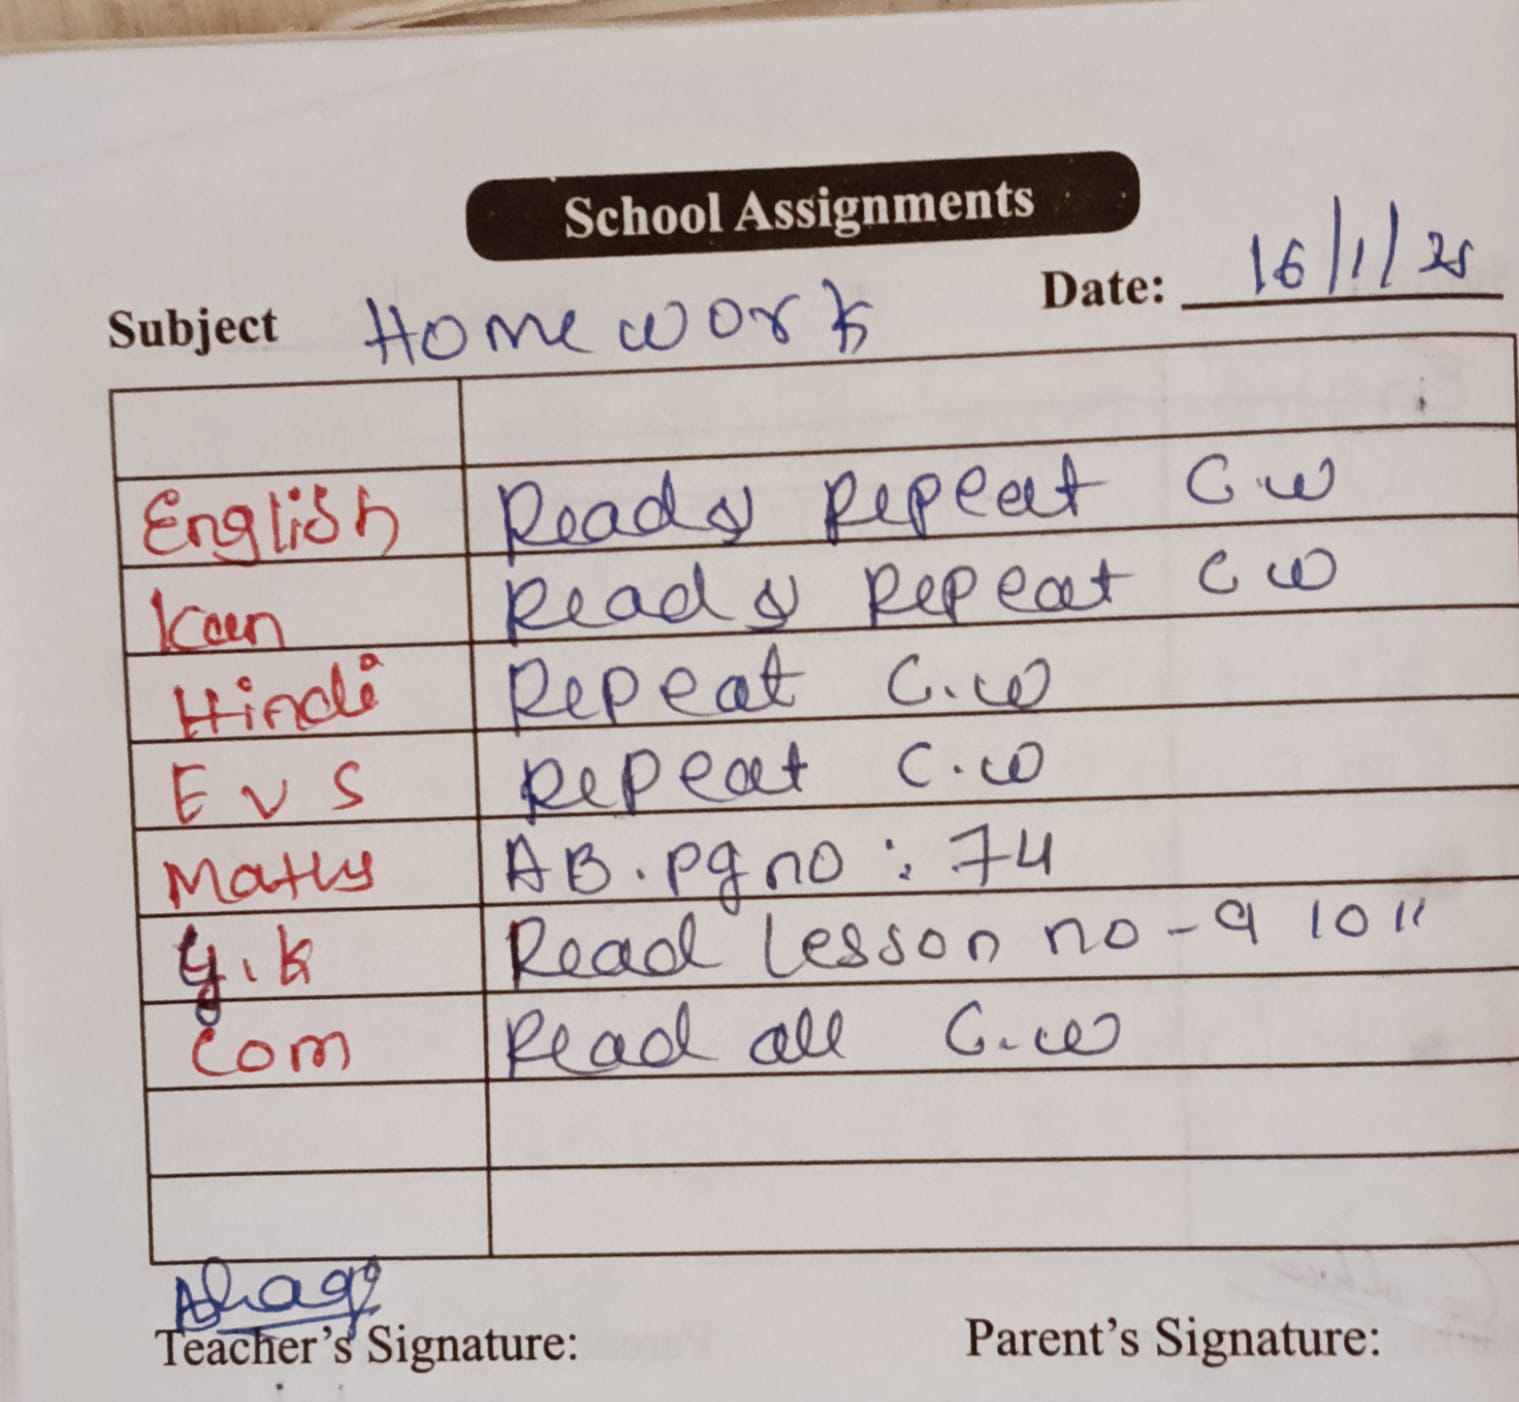 School Assignments
Subject Homework Date: 16/1/25
English Read & Repeat C.w
Kan Read & Repeat C w
Hindi Repeat C.w
E V S Repeat C.w
Maths AB. pg no : 74
G.K Read Lesson no - 9 10 11
Com Read all C.w
Teacher's Signature: Parent's Signature: